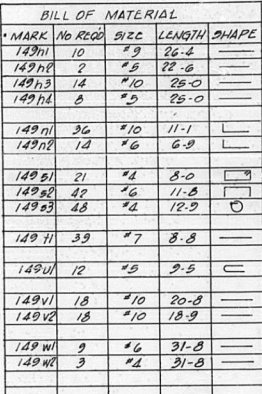 BILL OF MATERIAL
MARK NO REQ'D SIZE LENGTH SHAPE
149h1 10 #9 26-4
149h2 2 #5 22-6
149h3 14 #10 25-0
149h4 8 #5 25-0
149n1 36 #10 11-1
149n2 14 #6 6-9
149s1 21 #4 8-0
149s2 42 #6 11-8
149s3 48 #4 12-9
149t1 39 #7 8-8
149u1 12 #5 9-5
149v1 18 #10 20-8
149v2 18 #10 18-9
149w1 9 #6 31-8
149w2 3 #4 31-8